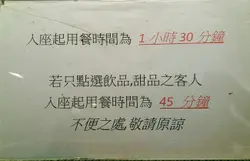 入座起用餐時間為 1 小時 30 分鐘
若只點選飲品,甜品之客人
入座起用餐時間為 45 分鐘
不便之處,敬請原諒